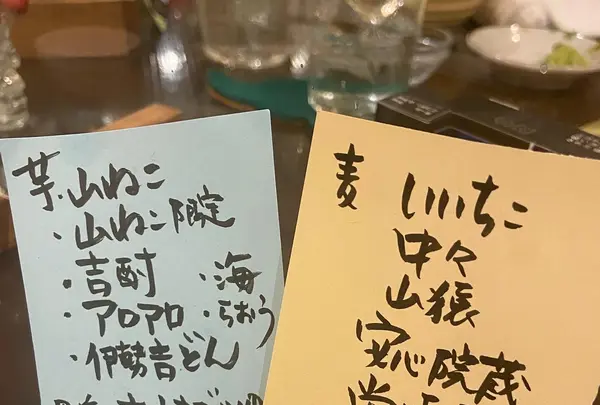 芋・山ねこ
・山ねこ限定
・吉酎 ・海
・アロアロ ・らおう
・伊勢吉どん
麦 いいちこ
中々
山猿
安心院蔵